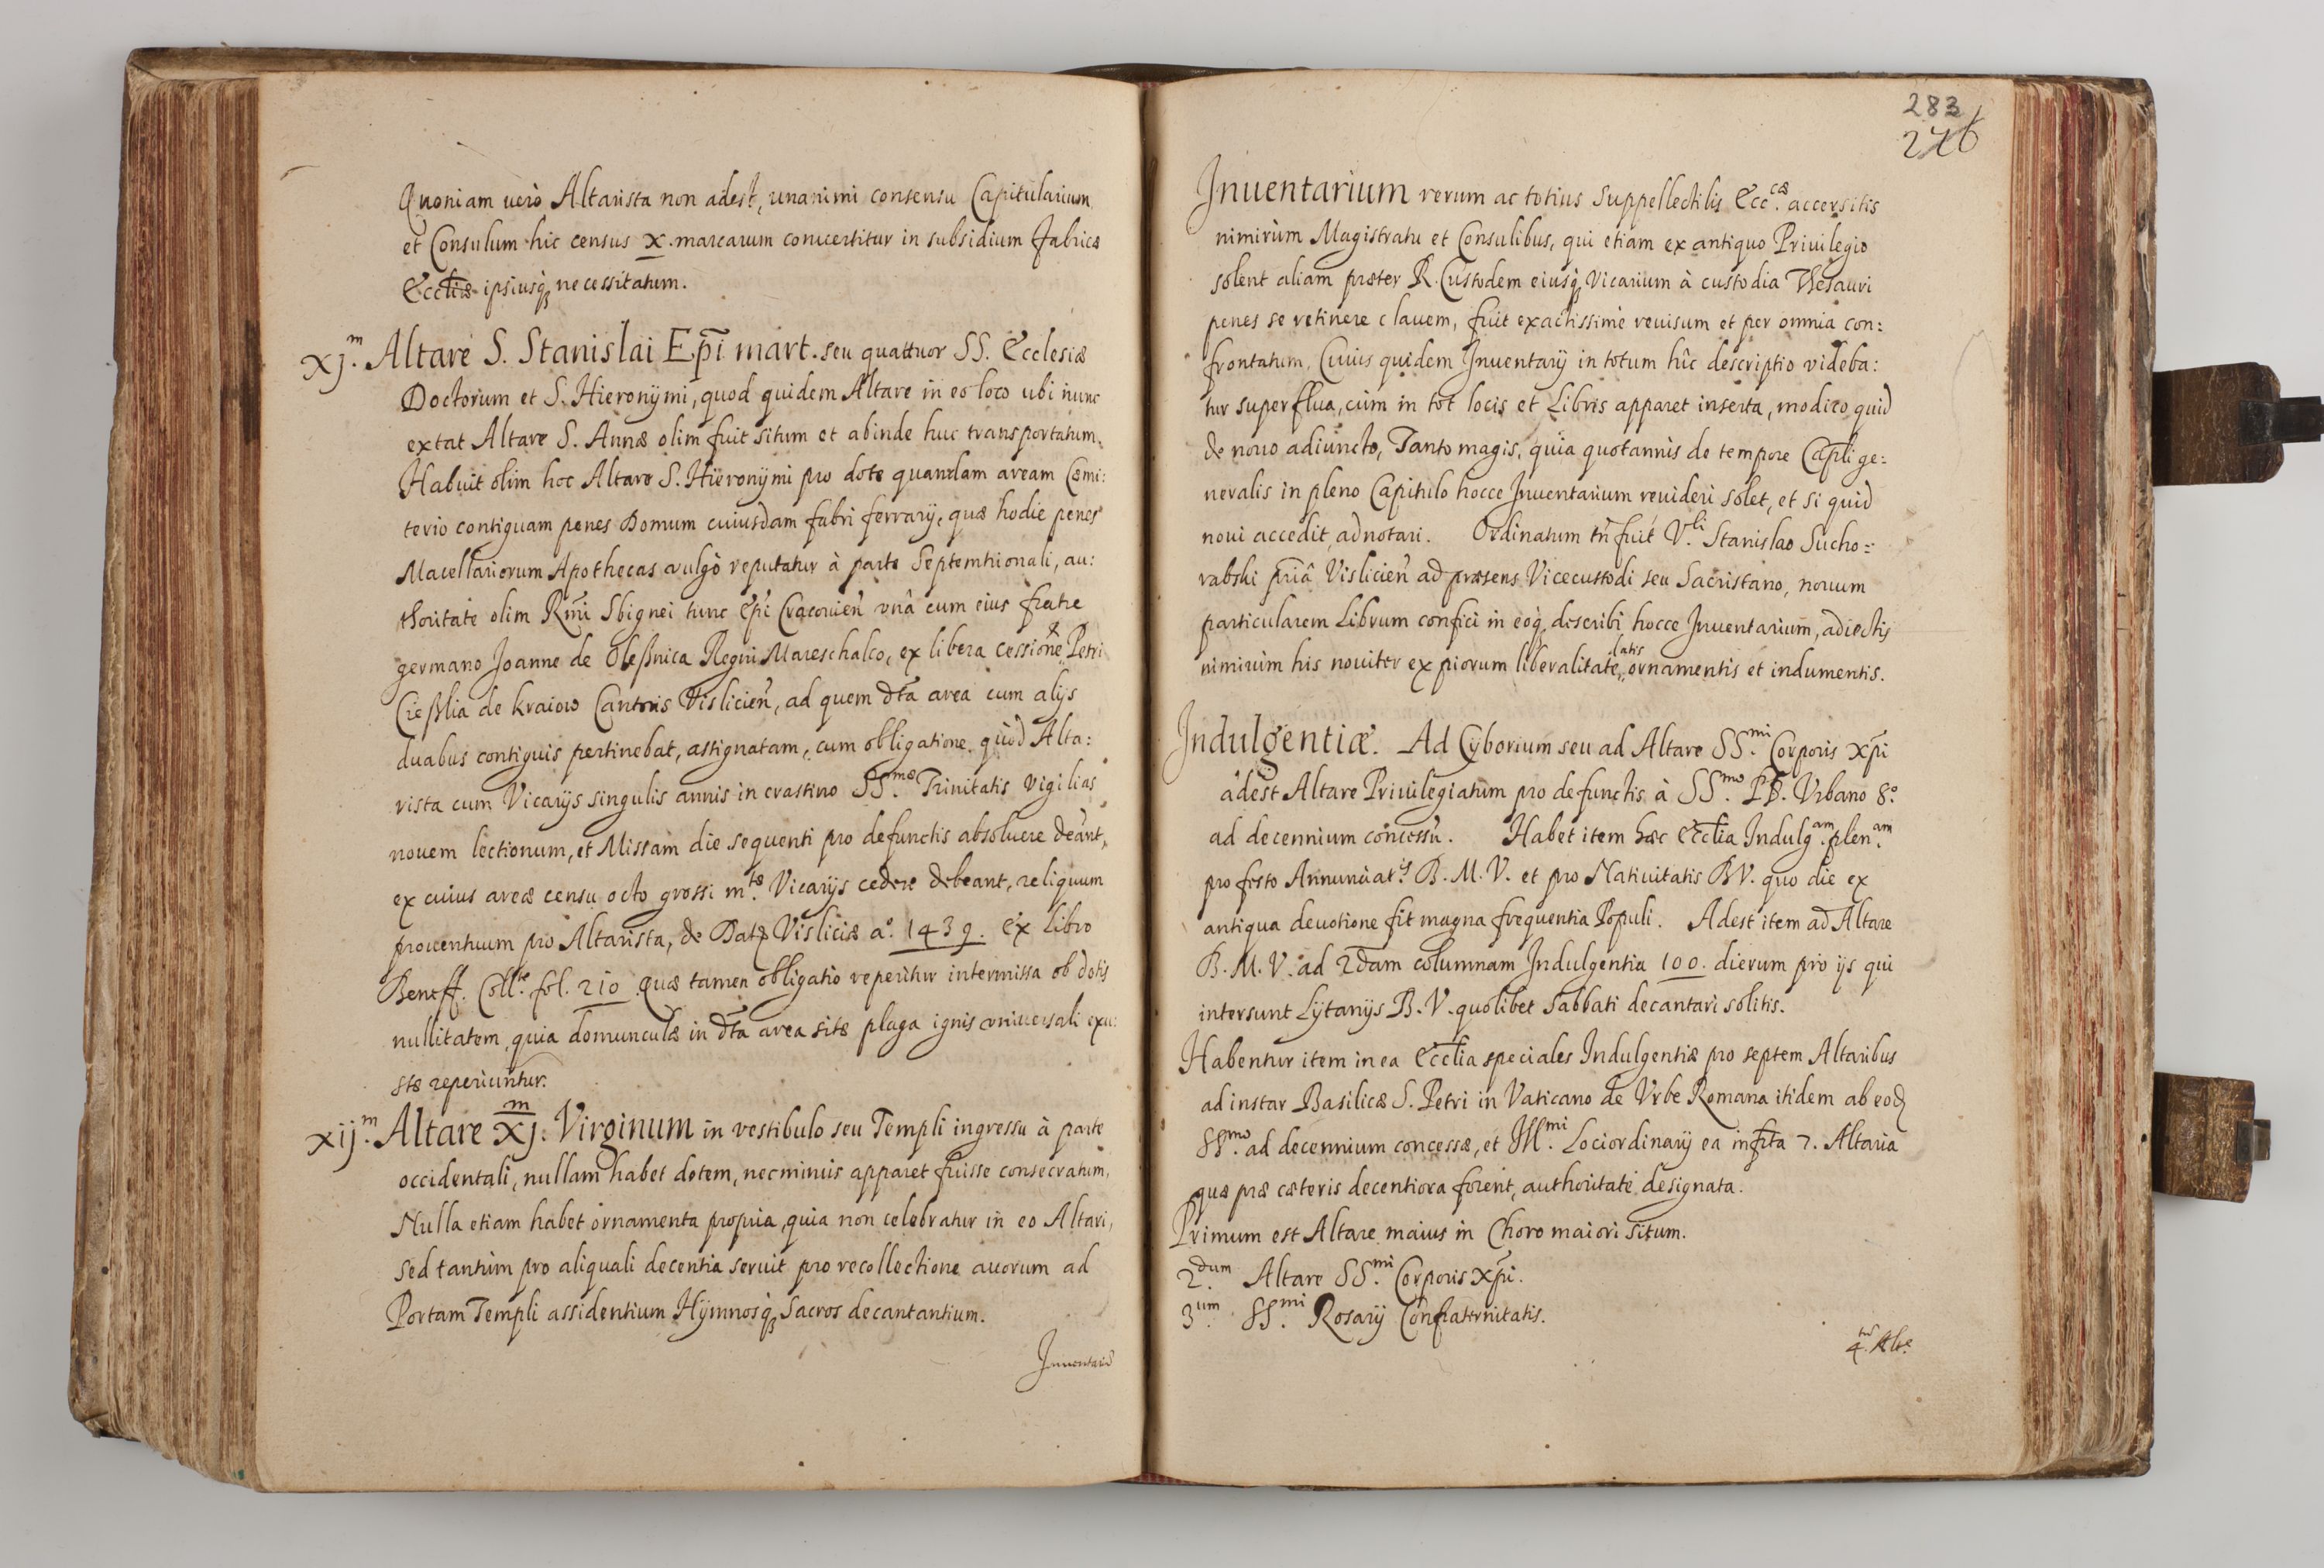 Quoniam verò Altarista non adest, unanimi consensu Capitularium
et Consulum hic census X. marcarum conuertitur in subsidium fabricæ
Eccliæ ipsiusq; necessitatum.
xj.m Altare S. Stanislai Ep̃i mart. seu quattuor SS. Ecclesiæ
Doctorum et S. Hieronymi, quod quidem Altare in eo loco ubi nunc
extat Altare S. Annæ olim fuit situm et abinde huc transportatum.
Habuit olim hoc Altare S. Hieronymi pro dote quandam aream Cæmi:
terio contiguam penes Domum cuiusdam fabri ferrarij, quæ hodie penes
Macellariorum Apothecas vulgò reputatur à parte Septemtrionali, au:
thoritate olim Rm̃i Sbignei tunc Ep̃i Cracouien̄ vnâ cum eius fratre
germano Joanne de Oleßnica Regni Mareschalco, ex libera cessione Petri
Cießlia de kraiow Cantoris Vislicien̄, ad quem dt̃a area cum alijs
duabus contiguis pertinebat, assignatam, cum obligatione quòd Alta:
rista cum Vicarijs singulis annis in crastino SS.mæ Trinitatis vigilias
nouem lectionum, et Missam die sequenti pro defunctis absoluere deãnt,
ex cuius areæ censu octo grossi m.tæ Vicarijs cedere debeant, reliquum
prouentuum pro Altarista, de Data Visliciæ a.o 1439. ex Libro
Beneff. Coll.tæ fol. 210 Quæ tamen obligatio reperitur intermissa ob dotis
nullitatem, quia domunculæ in dt̃a area sitæ plaga ignis vniuersali exu:
stæ reperiuntur.
xij.m Altare XJ.m Virginum in vestibulo seu Templi ingressu à parte
occidentali, nullam habet dotem, nec minùs apparet fuisse consecratum,
Nulla etiam habet ornamenta propria, quia non celebratur in eo Altari,
sed tantùm pro aliquali decentia seruit pro recollectione auorum ad
Portam Templi assidentium Hymnosq; Sacros decantantium.
Inuentariũ
283
276
Inuentarium rerum ac totius Suppellectilis Ecc.cæ accersitis
nimirùm Magistratu et Consulibus, qui etiam ex antiquo Priuilegio
solent aliam præter R. Custodem eiusq; Vicarium à custodia Thesauri
penes se retinere clauem, fuit exactissimè reuisum et per omnia con:
frontatum, Cuius quidem Inuentarij in totum hîc descriptio videba:
tur superflua, cùm in tot locis et Libris apparet inserta, modico quid
de nouo adiuncto, Tanto magis, quia quotannis de tempore Cap̃li ge:
neralis in pleno Capitulo hocce Inuentarium reuideri solet, et si quid
noui accedit, adnotari. Ordinatum tñ fuit V.li Stanislao Sucho:
rabski priã Vislicien̄ ad præsens Vicecustodi seu Sacristano, nouum
particularem Librum confici in eoq; describi hocce Inuentarium, adiectis
nimirùm his nouiter ex piorum liberalitate latis ornamentis et indumentis.
Indulgentiæ. Ad Cyborium seu ad Altare SS.mi Corporis Xp̃i
adest Altare Priuilegiatum pro defunctis à SS.mo P.D. Vrbano 8.o
ad decennium concessũ. Habet item hæc Ecclia Indulg.am plen.am
pro festo Annunciat.is B. M. V. et pro Natiuitatis B V. quo die ex
antiqua deuotione fit magna frequentia Populi. Adest item ad Altare
B. M. V. ad 2dam columnam Indulgentia 100. dierum pro ijs qui
intersunt Lytanijs B. V. quolibet Sabbati decantari solitis.
Habentur item in ea Ecclia speciales Indulgentiæ pro septem Altaribus
ad instar Basilicæ S. Petri in Vaticano de Vrbe Romana itidem ab eod
SS.mo ad decennium concessæ, et Ill.mi Loci ordinarij ea infrta 7. Altaria
quæ præ cæteris decentiora forent, authoritate designata.
Primum est Altare maius in Choro maiori situm.
2.dum Altare SS.mi Corporis Xp̃i.
3.um SS.mi Rosarij Confraternitatis.
4. Alt.e